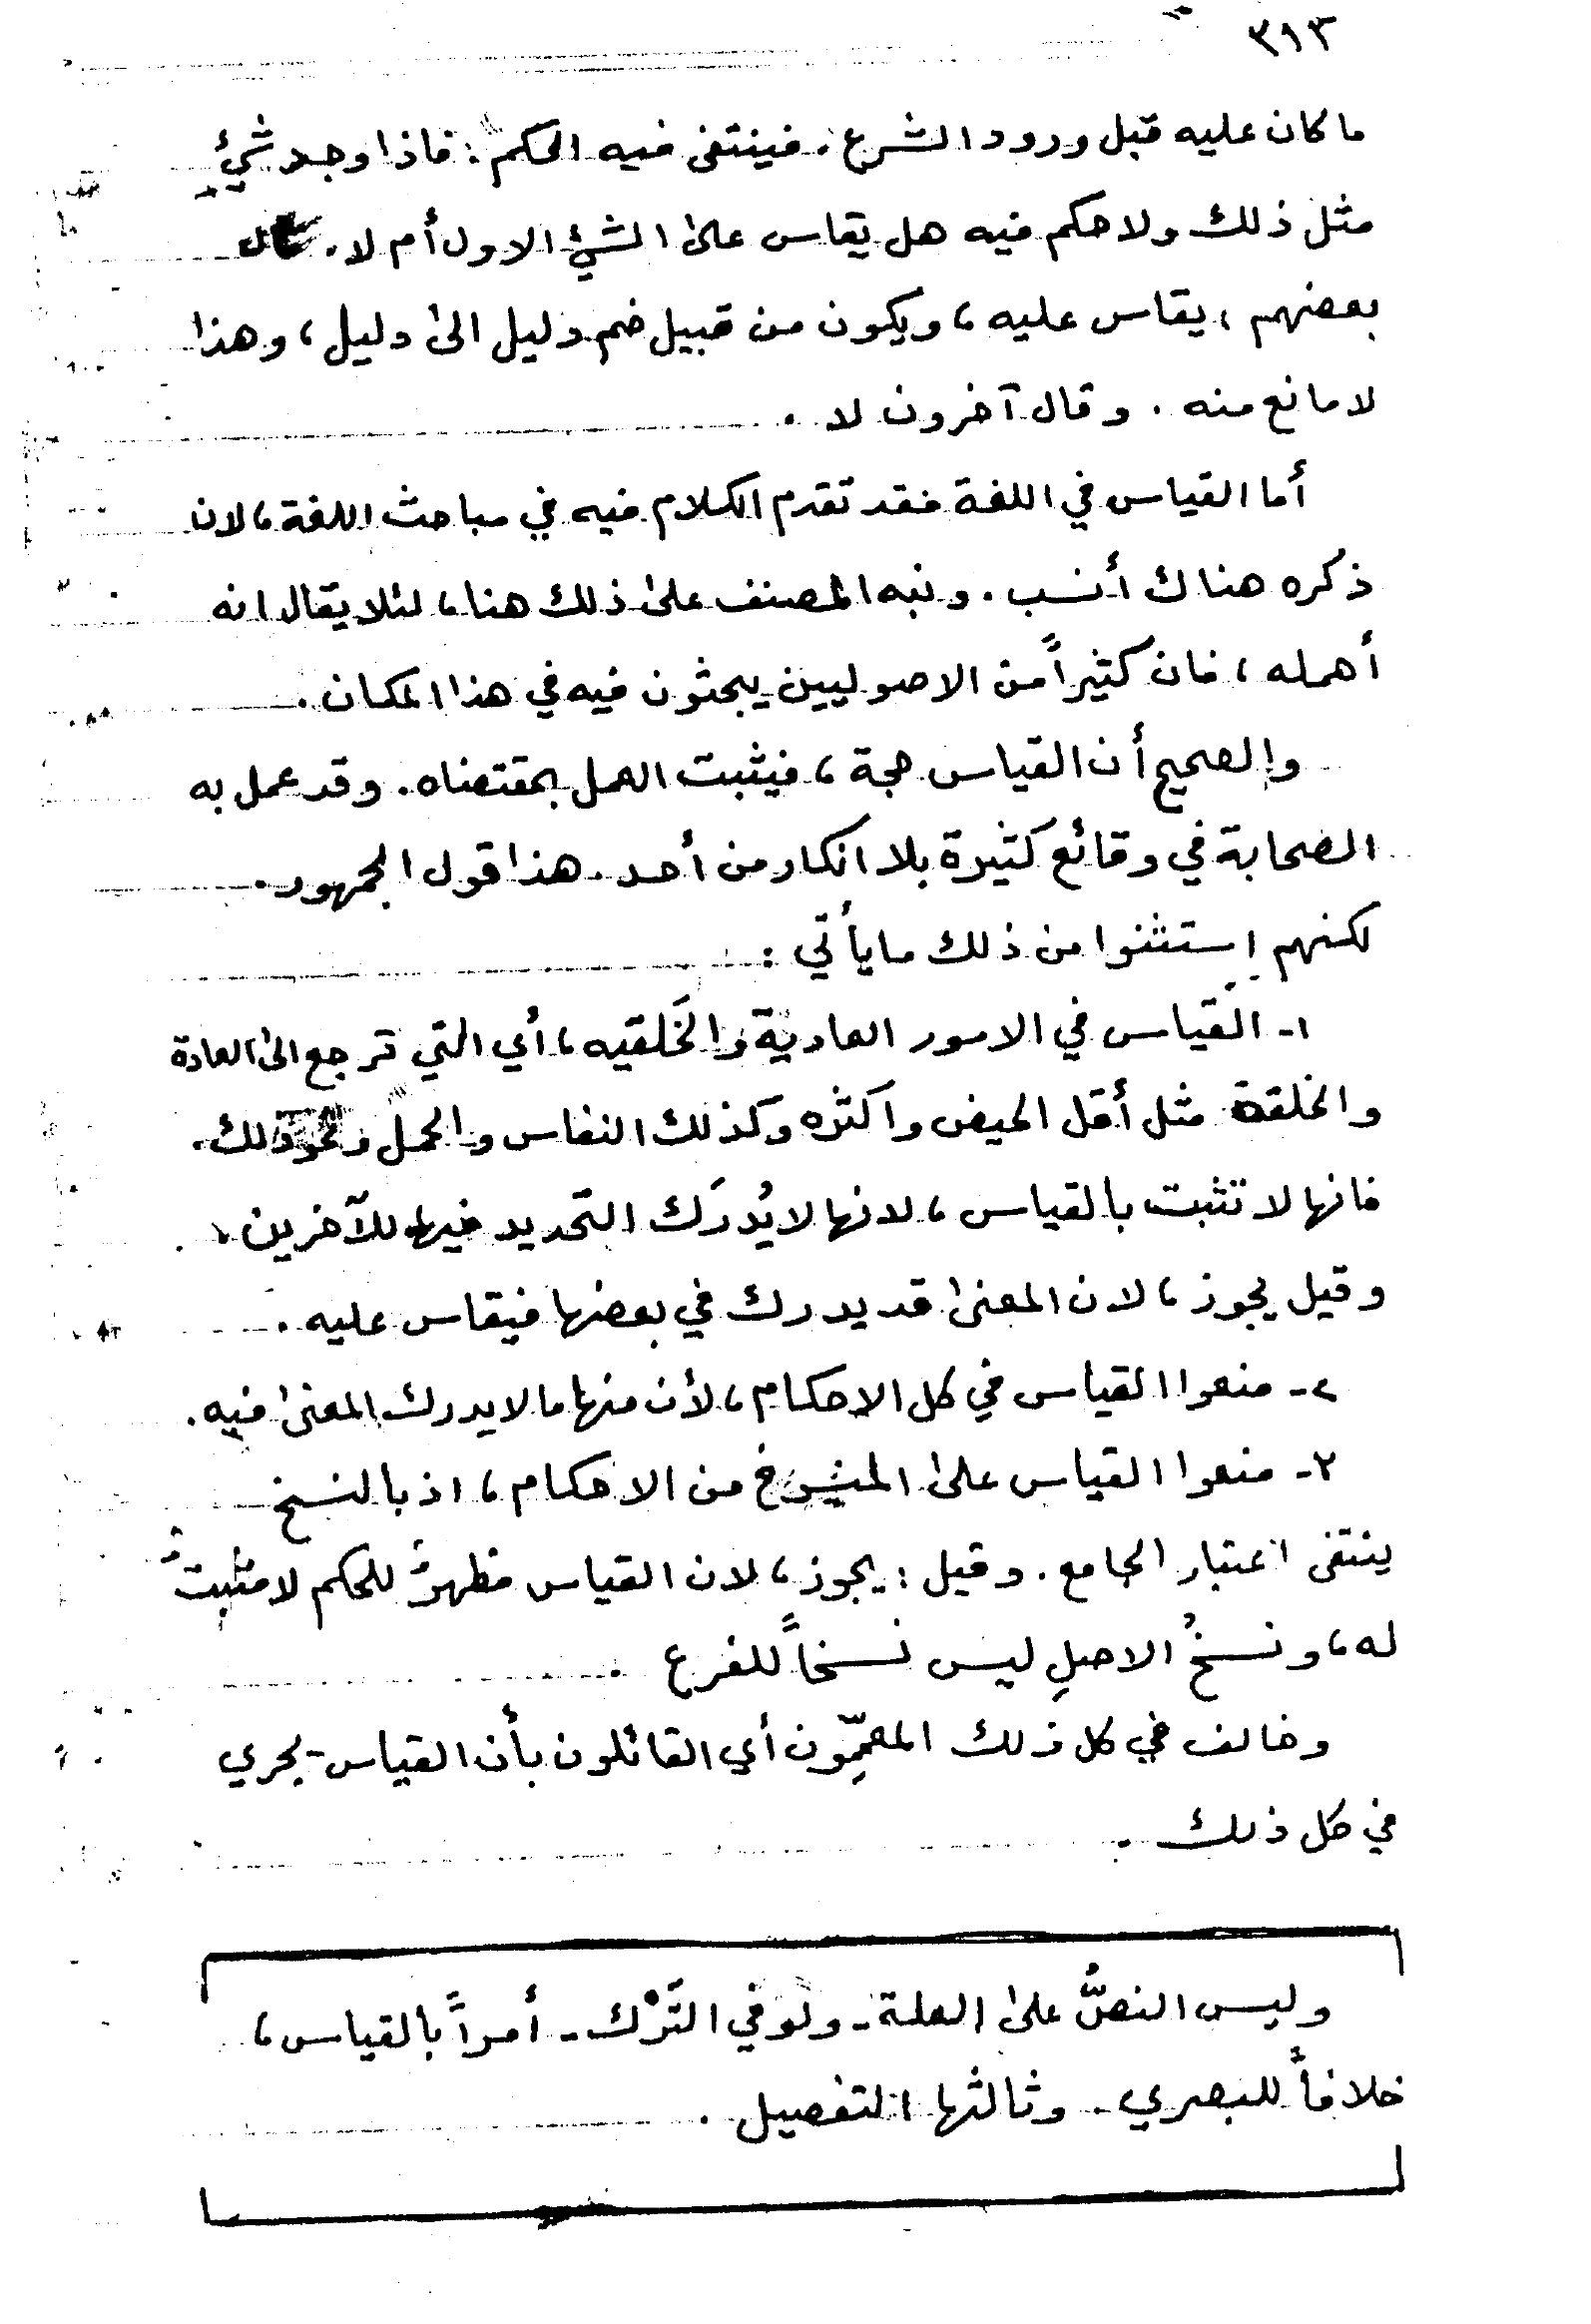 ٣١٣
ما كان عليه قبل ورود الشرع. فينتفى فيه الحكم: فاذا وجد شيءٌ
مثل ذلك ولا حكم فيه هل يقاس علىٰ الشيء الاول أم لا. قال
بعضهم، يقاس عليه، ويكون من قبيل ضم دليل الىٰ دليل، وهذا
لا مانع منه. وقال آخرون لا.
أما القياس في اللغة فقد تقدم الكلام فيه في مباحث اللغة، لان
ذكره هناك أنسب. ونبه المصنف علىٰ ذلك هنا، لئلا يقال انه
أهمله، فان كثيراً من الاصوليين يبحثون فيه في هذا المكان.
والصحيح أن القياس حجة، فيثبت العمل بمقتضاه. وقد عمل به
الصحابة في وقائع كثيرة بلا انكار من أحد. هذا قول الجمهور.
لكنهم إستثنوا من ذلك ما يأتي:
١- القياس في الامور العادية والخَلقيه، أي التي ترجع الىٰ العادة
والخلقة مثل أقل الحيض واكثره وكذلك النفاس والحمل ونحو ذلك.
فانها لا تثبت بالقياس، لانها لا يُدرَك التحديد فيها للآخرين.
وقيل يجوز، لان المعنىٰ قد يدرك في بعضها فيقاس عليه.
٢- منعوا القياس في كل الاحكام، لأن منها ما لا يدرك المعنىٰ فيه.
٣- منعوا القياس علىٰ المنسوخ من الاحكام، اذ بالنسخ
ينتفى اعتبار الجامع. وقيل: يجوز، لان القياس مظهرٌ للحكم لا مثبتٌ
له، ونسخُ الاصلِ ليس نسخاً للفرع.
وخالف في كل ذلك المعمِّمون أي القائلون بأن القياس يجري
في كل ذلك.
وليس النصُّ علىٰ العلة - ولو في التَّرْك - أمراً بالقياس،
خلافاً للبصري. وثالثها التفصيل.